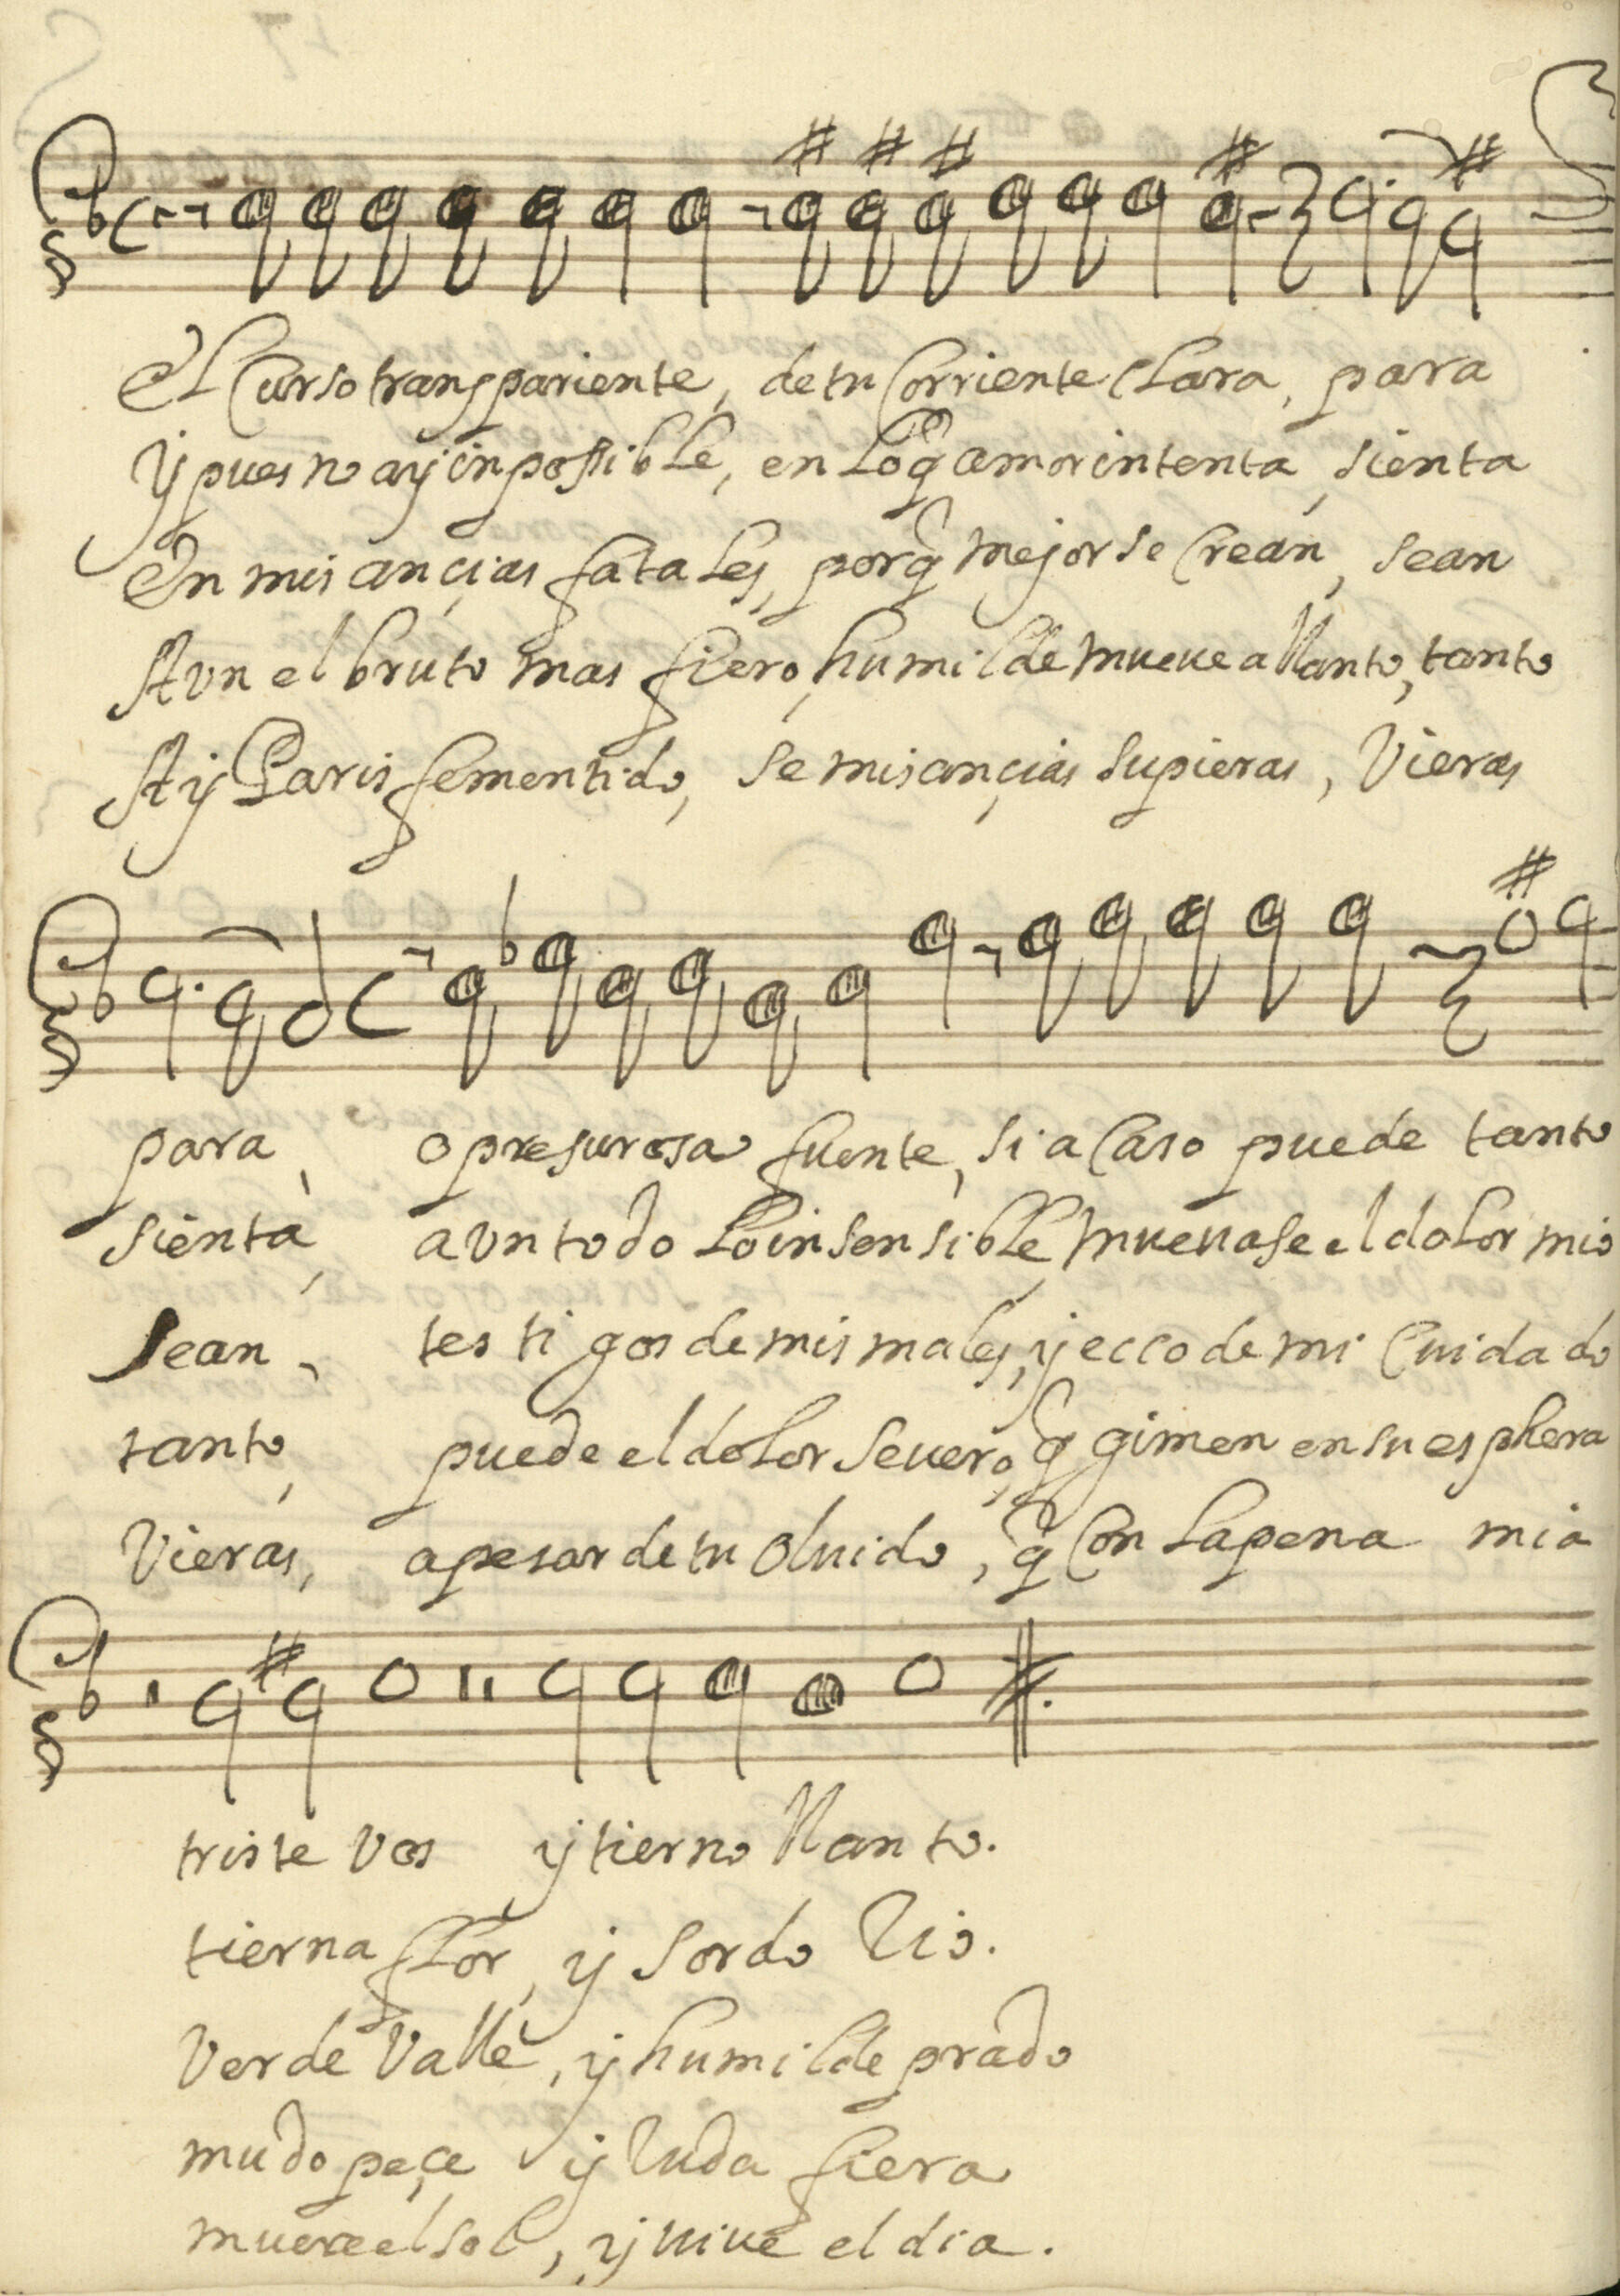 El Curso transpariente, de tu Corriente Clara, para
y pues no ay inposible, en Lo q̃ amor intenta, sienta
En mis ançias fatales, porq̃ mejor se Crean, sean
Aun el bruto mas fiero, humilde mueve a llanto, tanto
Ay Paris fementido, se mis ançias supieras, Vieras
para, o presurosa fuente, si a Caso puede tanto
sienta, a vn todo Lo insensible, muevase el dolor mio
sean, testigos de mis males, y ecco de mi Cuidado
tanto, puede el dolor severo, q̃ gimen en su esphera
Vieras, a pesar de tu olvido, q̃ Con La pena mia
triste vos y tierno llanto.
tierna flor, y sordo Rio.
Verde Valle, y humilde prado
mudo peçe y Ruda fiera
muere el sol, y vive el dia.